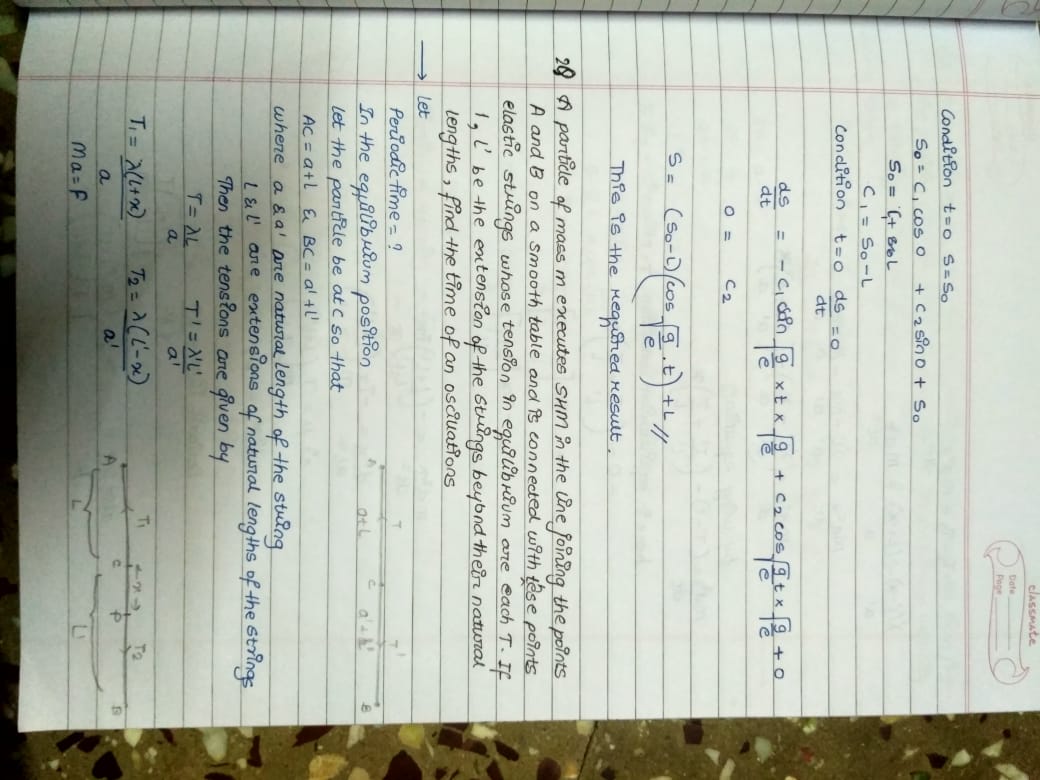 classmate
Date
Page
Condition t=0 S=S₀
S₀ = C₁ cos 0 + C₂ sin 0 + S₀
C₁ = S₀ - L
Condition t=0 ds/dt = 0
ds/dt = -C₁ sin √g/e × t × √g/e + C₂ cos √g/e t × √g/e + 0
0 = C₂
S = (S₀-L)(cos √g/e . t) + L //
This is the required result.
2Q A particle of mass m executes SHM in the line joining the points
A and B on a smooth table and is connected with these points
elastic strings whose tension in equilibrium are each T. If
l, l' be the extension of the strings beyond their natural
lengths, find the time of an oscillations
→ Let
Periodic time = ?
In the equilibrium position
let the particle be at C so that
AC = a+L & BC = a'+L'
A T C T' B
a+L a'+L'
where a & a' are natural length of the string
L & L' are extensions of natural lengths of the strings
Then the tensions are given by
T = λL/a T' = λ'L'/a'
A T₁ C ←x→ P T₂ B
L L'
T₁ = λ(L+x)/a T₂ = λ(L'-x)/a'
Ma = F